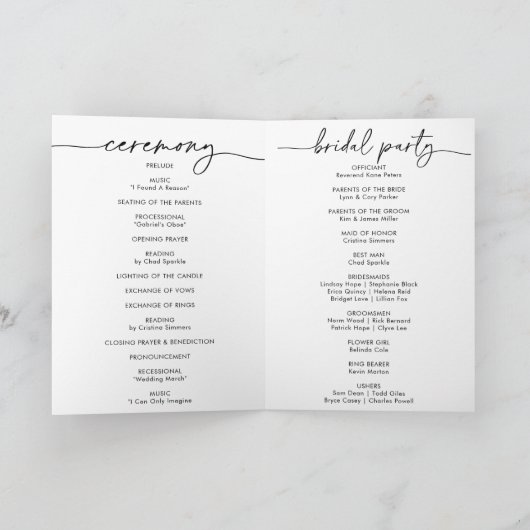 ceremony
PRELUDE
MUSIC
"I Found A Reason"
SEATING OF THE PARENTS
PROCESSIONAL
"Gabriel's Oboe"
OPENING PRAYER
READING
by Chad Sparkle
LIGHTING OF THE CANDLE
EXCHANGE OF VOWS
EXCHANGE OF RINGS
READING
by Cristina Simmers
CLOSING PRAYER & BENEDICTION
PRONOUNCEMENT
RECESSIONAL
"Wedding March"
MUSIC
"I Can Only Imagine
bridal party
OFFICIANT
Reverend Kane Peters
PARENTS OF THE BRIDE
Lynn & Cory Parker
PARENTS OF THE GROOM
Kim & James Miller
MAID OF HONOR
Cristina Simmers
BEST MAN
Chad Sparkle
BRIDESMAIDS
Lindsay Hope | Stephanie Black
Erica Quincy | Helena Reid
Bridget Love | Lillian Fox
GROOMSMEN
Norm Wood | Rick Bernard
Patrick Hope | Clyve Lee
FLOWER GIRL
Belinda Cole
RING BEARER
Kevin Morton
USHERS
Sam Dean | Todd Giles
Bryce Casey | Charles Powell